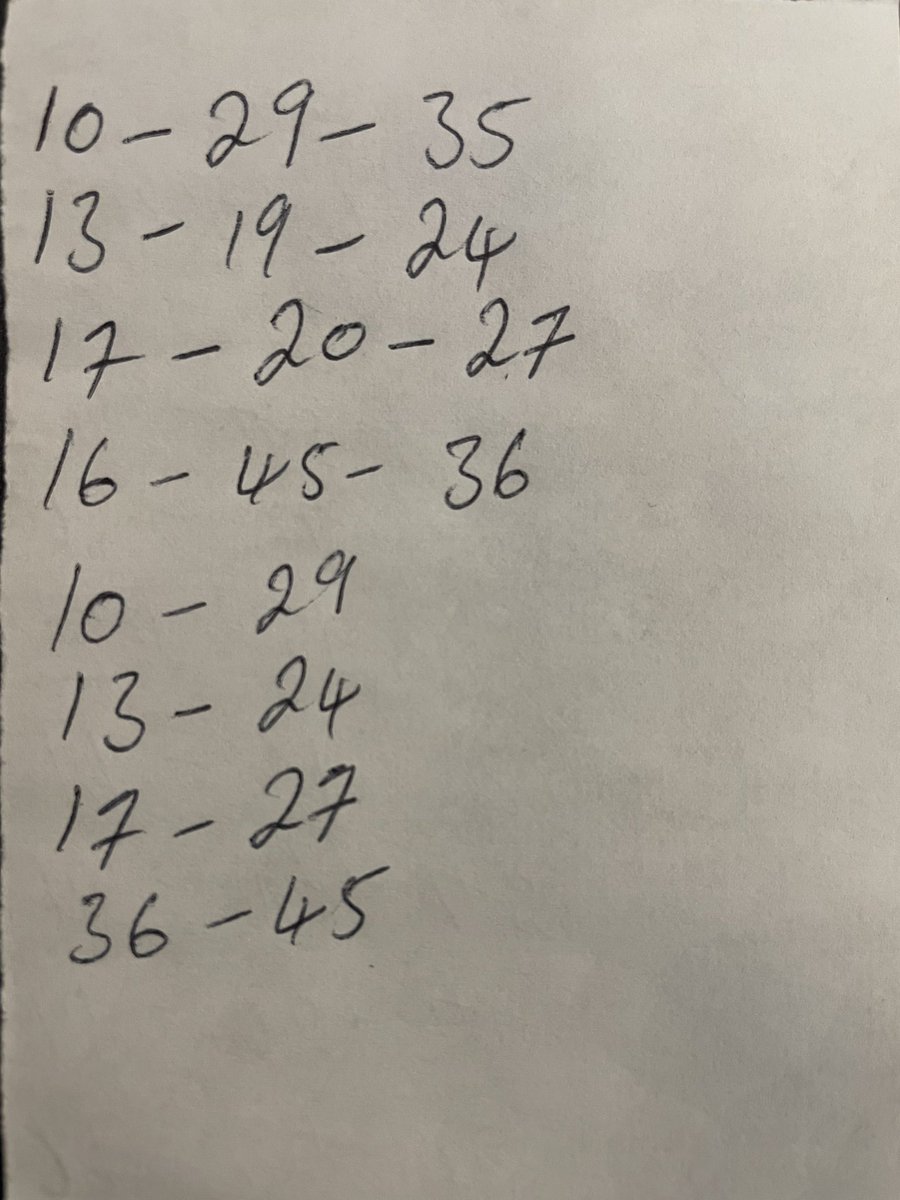 10 - 29 - 35
13 - 19 - 24
17 - 20 - 27
16 - 45 - 36
10 - 29
13 - 24
17 - 27
36 - 45